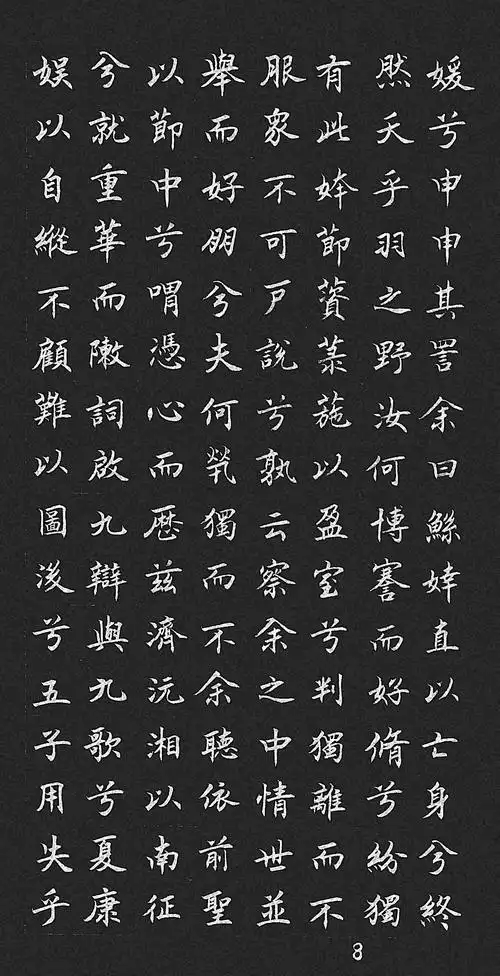 媛兮申申其詈余曰鯀婞直以亡身兮終
然夭乎羽之野汝何博謇而好脩兮紛獨
有此姱節薋菉葹以盈室兮判獨離而不
服眾不可戶說兮孰云察余之中情世並
舉而好朋兮夫何煢獨而不余聽依前聖
以節中兮喟憑心而歷茲濟沅湘以南征
兮就重華而敶詞啟九辯與九歌兮夏康
娛以自縱不顧難以圖後兮五子用失乎
8